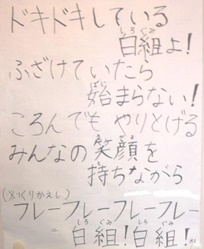 ドキドキしている
白組よ!
ふざけていたら
始まらない!
ころんでも やりとげる
みんなの笑顔を
持ちながら
(※くりかえし)
フレーフレーフレーフレー
白組!白組!